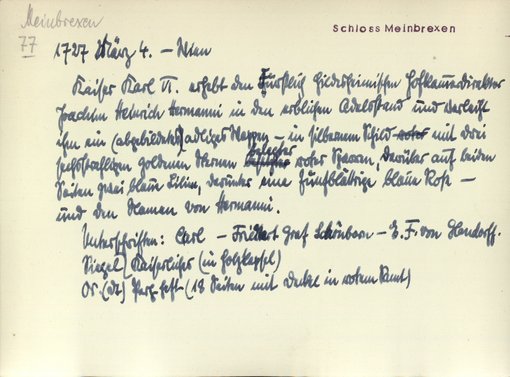 Meinbrexen
77
Schloss Meinbrexen
1727 März 4. – Wien
Kaiser Karl VI. erhebt den Fürstlich Hildesheimischen Hofkammerdirektor
Joachim Heinrich Hermanni in den erblichen Adelsstand und verleiht
ihm ein (abgebildetes) adliges Wappen – in silbernem Schild roter mit drei
sechsstrahligen goldenen Sternen belegter roter Sparren, darüber auf beiden
Seiten zwei blaue Lilien, darunter eine fünfblättrige blaue Rose –
und den Namen von Hermanni.
Unterschriften: Carl – Friedrich Graf Schönborn – E. F. von Glandorff.
Siegel) Kaiserliches (in Holzkapsel)
Or. (dt) Perg. heft (18 Seiten mit Deckel in rotem Samt)